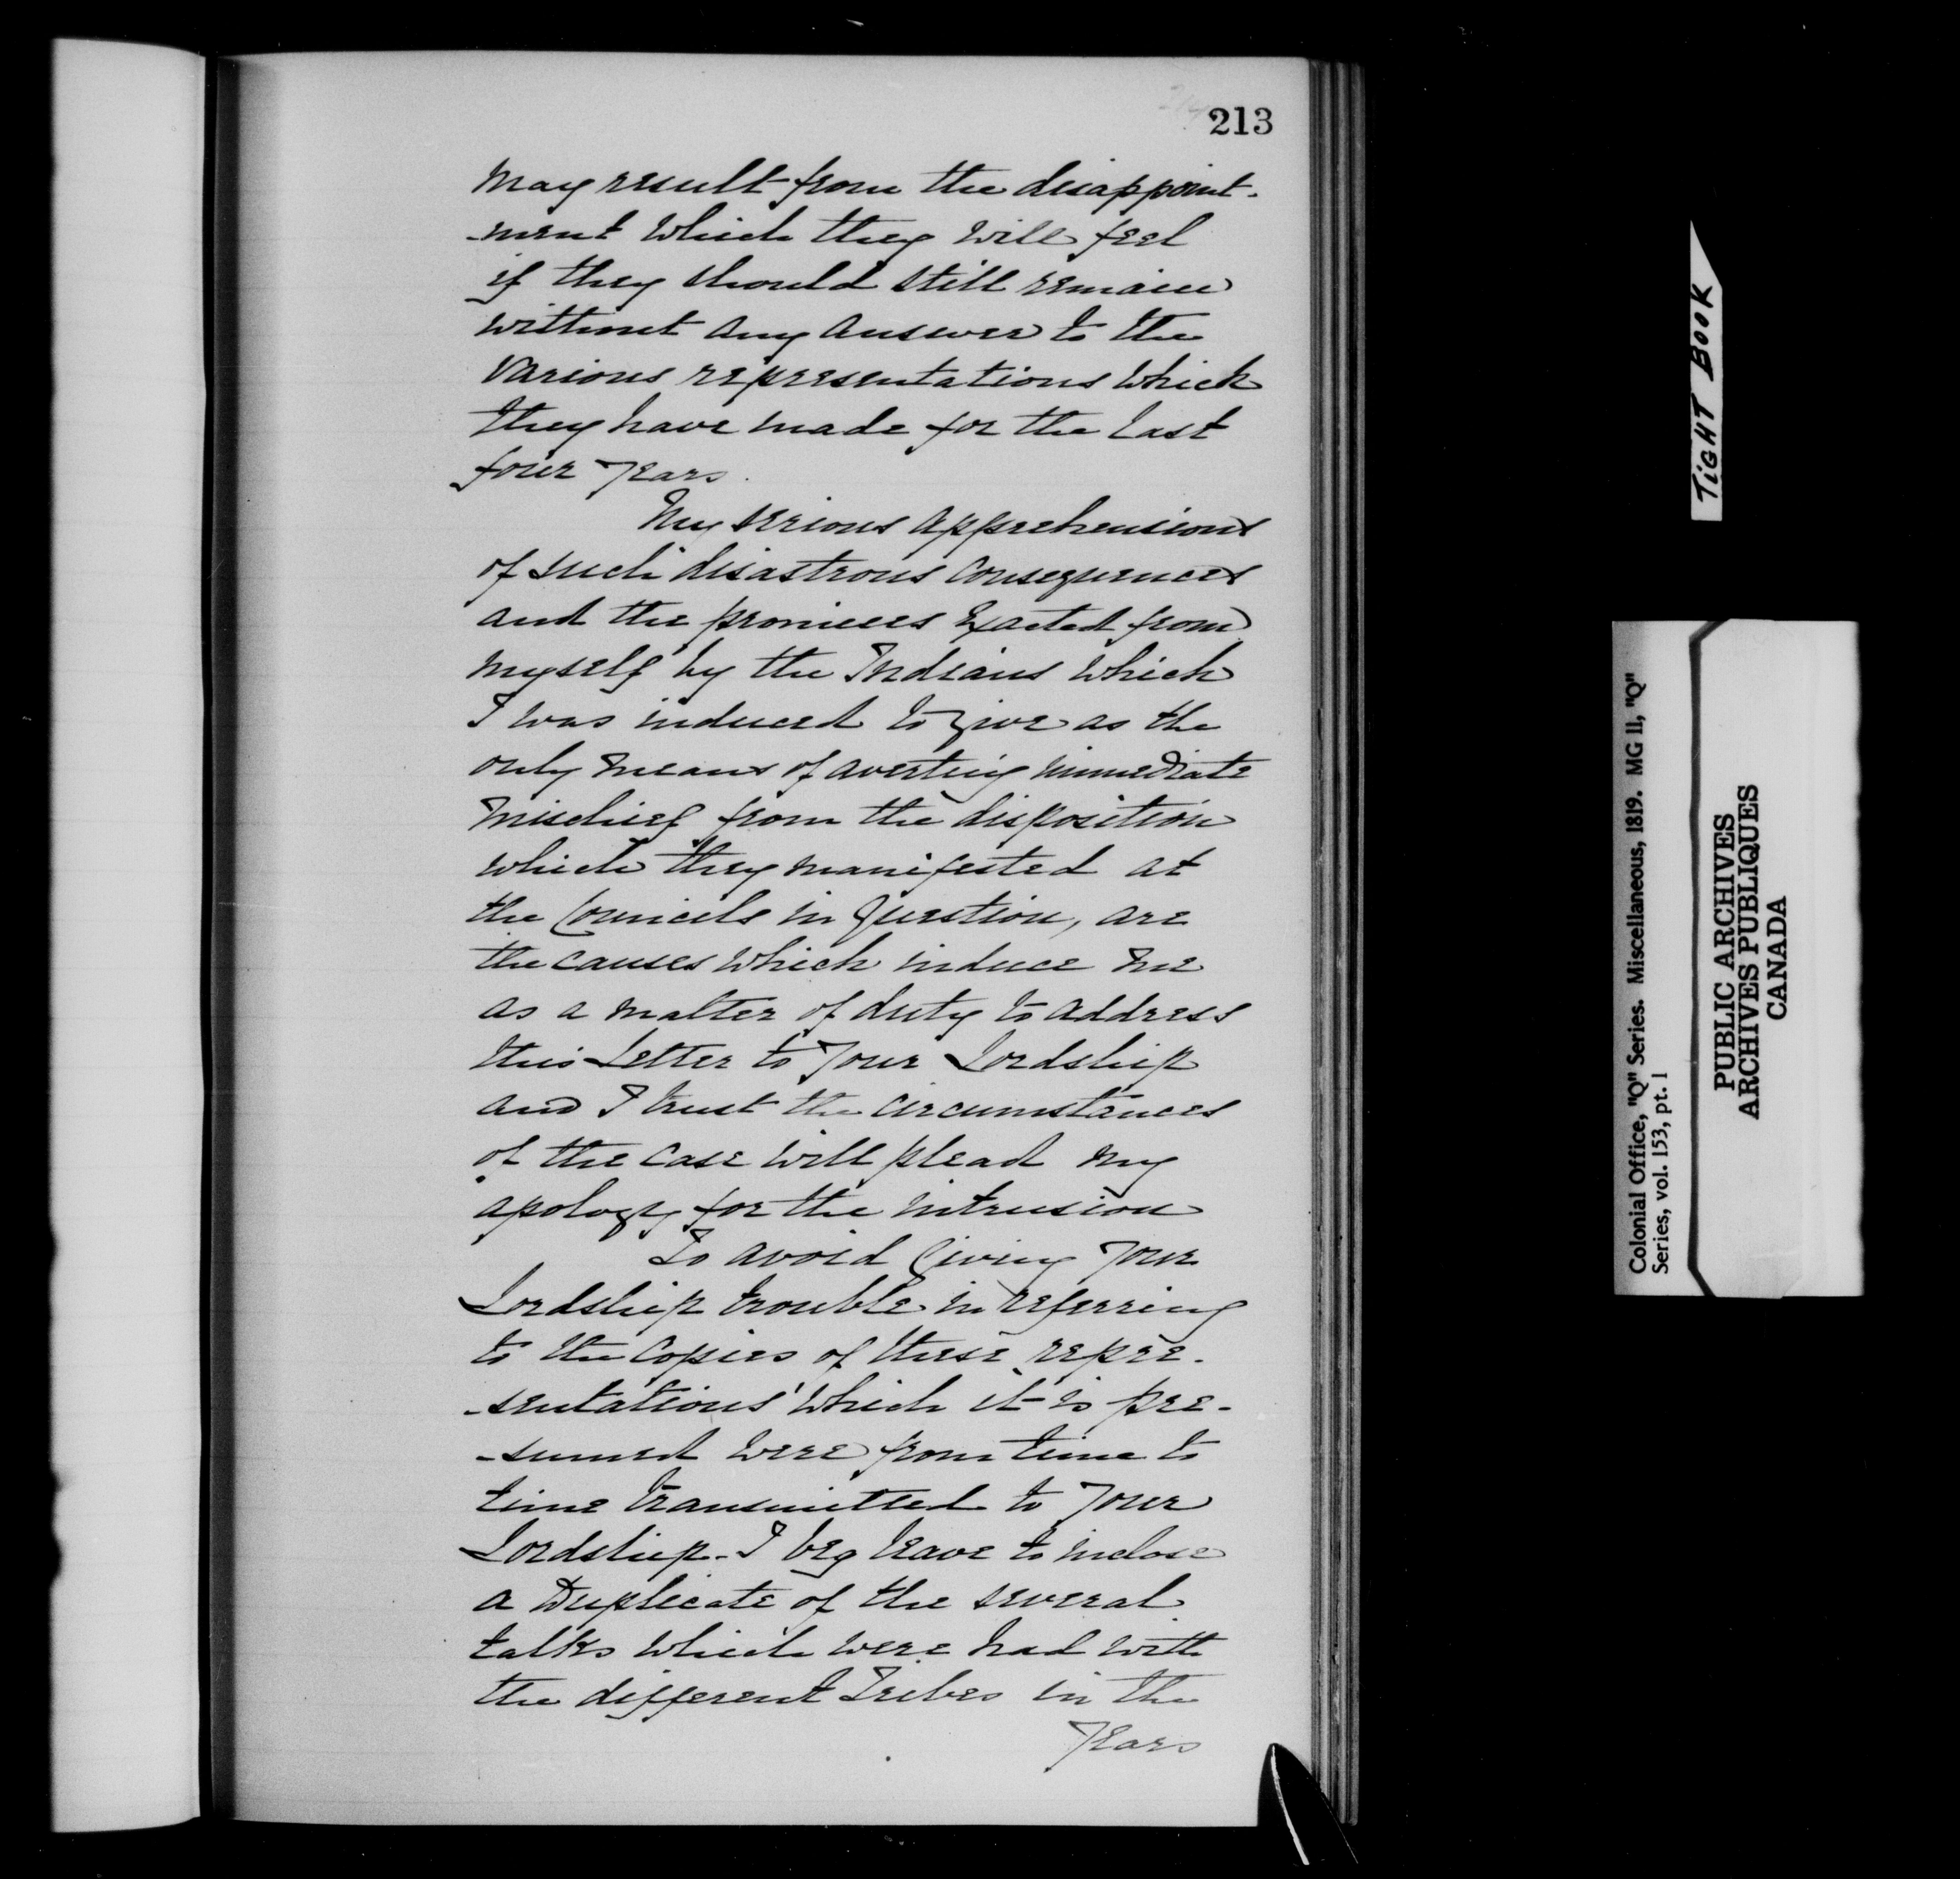 213
may result from the disappoint-
-ment which they will feel
if they should still remain
without any answer to the
various representations which
they have made for the last
four Years.
My serious apprehensions
of such disastrous consequences
and the promises exacted from
myself by the Indians which
I was induced to give as the
only means of averting immediate
mischief from the disposition
which they manifested at
the Councils in question, are
the causes which induce me
as a matter of duty to address
this Letter to Your Lordship
and I trust the circumstances
of the case will plead my
apology for the intrusion
To avoid Giving Your
Lordship trouble in referring
to the Copies of these repre-
-sentations which it is pre-
-sumed were from time to
time transmitted to Your
Lordship - I beg leave to inclose
a Duplicate of the several
talks which were had with
the different Tribes in the
Years
TIGHT BOOK
Colonial Office, "Q" Series. Miscellaneous, 1819. MG 11, "Q"
Series, vol. 153, pt. 1
PUBLIC ARCHIVES
ARCHIVES PUBLIQUES
CANADA